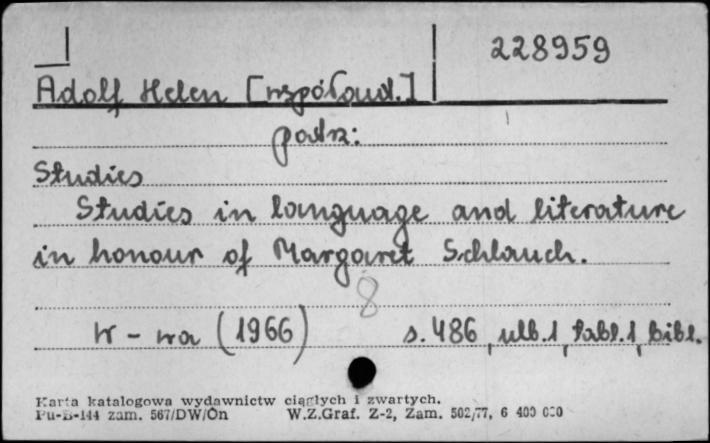 228959
Adolf Helen [współaud.]
patrz:
Studies
Studies in language and literature
in honour of Margaret Schlauch.
8
W-wa (1966) s. 486, ulb. 1, tabl. 1, bibl.
Karta katalogowa wydawnictw ciągłych i zwartych.
Pu-B-144 zam. 567/DW/On W.Z.Graf. Z-2, Zam. 502/77, 6 400 000